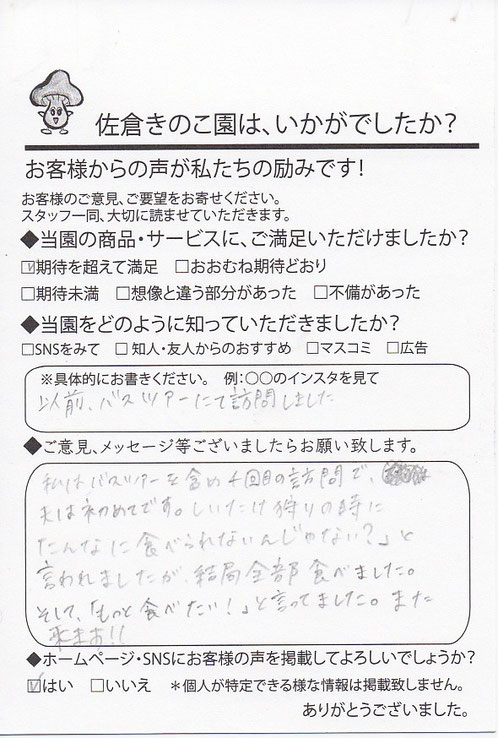 佐倉きのこ園は、いかがでしたか？
お客様からの声が私たちの励みです！
お客様のご意見、ご要望をお寄せください。
スタッフ一同、大切に読ませていただきます。
◆当園の商品・サービスに、ご満足いただけましたか？
☑期待を超えて満足 □おおむね期待どおり
□期待未満 □想像と違う部分があった □不備があった
◆当園をどのように知っていただきましたか？
□SNSをみて □知人・友人からのおすすめ □マスコミ □広告
※具体的にお書きください。 例：〇〇のインスタを見て
以前、バスツアーにて訪問しました
◆ご意見、メッセージ等ございましたらお願い致します。
私はバスツアーを含め4回目の訪問で、
夫は初めてです。しいたけ狩りの時に
「こんなに食べられないんじゃない？」と
言われましたが、結局全部食べました。
そして、「もっと食べたい！」と言ってました。また
来ます!!
◆ホームページ・SNSにお客様の声を掲載してよろしいでしょうか？
☑はい □いいえ ＊個人が特定できる様な情報は掲載致しません。
ありがとうございました。